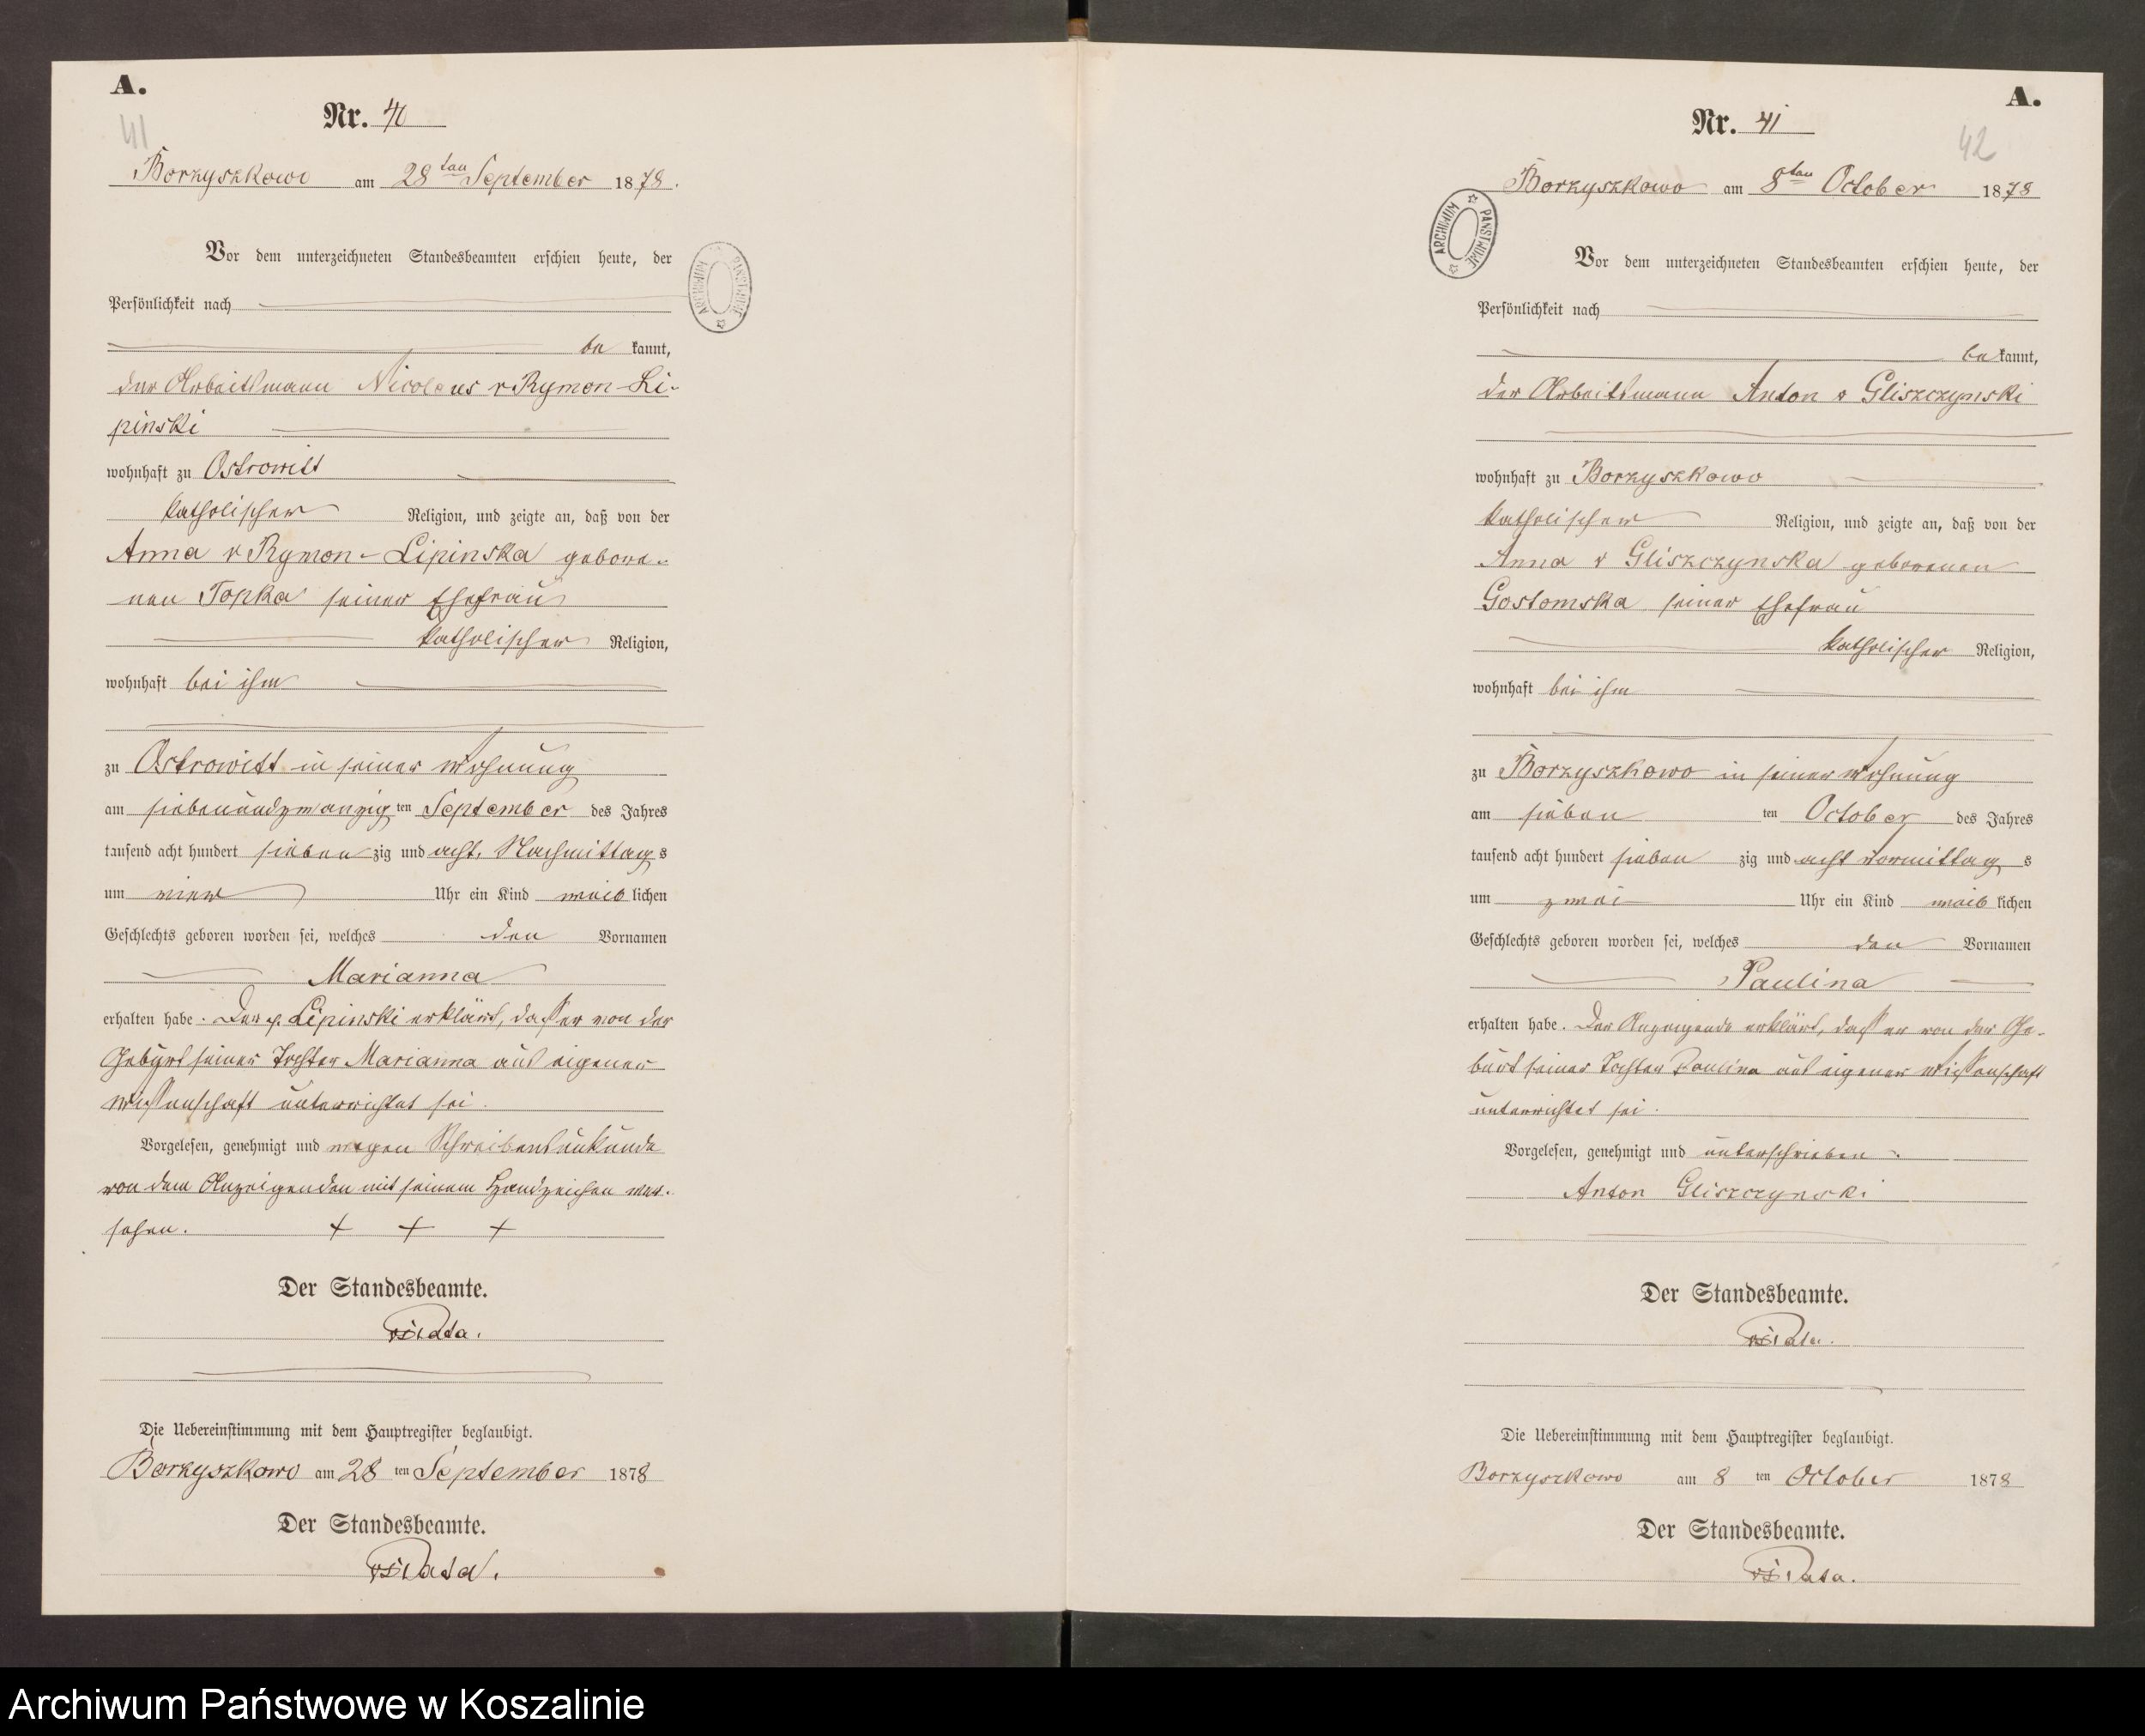 A.
41
Nr. 40
Borzyszkowo am 28ten September 1878.
Vor dem unterzeichneten Standesbeamten erschien heute, der
Persönlichkeit nach
be kannt,
der Arbeitsmann Nicolaus v Rymon-Li-
pinski
wohnhaft zu Ostrowitt
katholischer Religion, und zeigte an, daß von der
Anna v Rymon-Lipinska gebore-
nen Topka seiner Ehefrau
katholischer Religion,
wohnhaft bei ihm
zu Ostrowitt in seiner Wohnung
am siebenundzwanzig ten September des Jahres
tausend acht hundert sieben zig und acht, Nachmittag s
um vier Uhr ein Kind weib lichen
Geschlechts geboren worden sei, welches den Vornamen
Marianna
erhalten habe. Der p. Lipinski erklärt, dass er von der
Geburt seiner Tochter Marianna aus eigener
Wissenschaft unterrichtet sei.
Vorgelesen, genehmigt und wegen Schreibensunkunde
von dem Anzeigenden mit seinem Handzeichen ver-
sehen. + + +
Der Standesbeamte.
Die Uebereinstimmung mit dem Hauptregister beglaubigt.
Borzyszkowo am 28 ten September 1878
Der Standesbeamte.
ARCHIWUM PAŃSTWOWE
A.
42
Nr. 41
Borzyszkowo am 8ten October 1878
ARCHIWUM PAŃSTWOWE
Vor dem unterzeichneten Standesbeamten erschien heute, der
Persönlichkeit nach
be kannt,
der Arbeitsmann Anton v Gliszczynski
wohnhaft zu Borzyszkowo
katholischer Religion, und zeigte an, daß von der
Anna v Gliszczynska geborenen
Gostomska seiner Ehefrau
katholischer Religion,
wohnhaft bei ihm
zu Borzyszkowo in seiner Wohnung
am sieben ten October des Jahres
tausend acht hundert sieben zig und acht Vormittag s
um zwei Uhr ein Kind weib lichen
Geschlechts geboren worden sei, welches den Vornamen
Paulina
erhalten habe. Der Anzeigende erklärt, dass er von der Ge-
burt seiner Tochter Paulina aus eigener Wissenschaft
unterrichtet sei.
Vorgelesen, genehmigt und unterschrieben.
Anton Gliszczynski
Der Standesbeamte.
Die Uebereinstimmung mit dem Hauptregister beglaubigt.
Borzyszkowo am 8 ten October 1878
Der Standesbeamte.
Archiwum Państwowe w Koszalinie